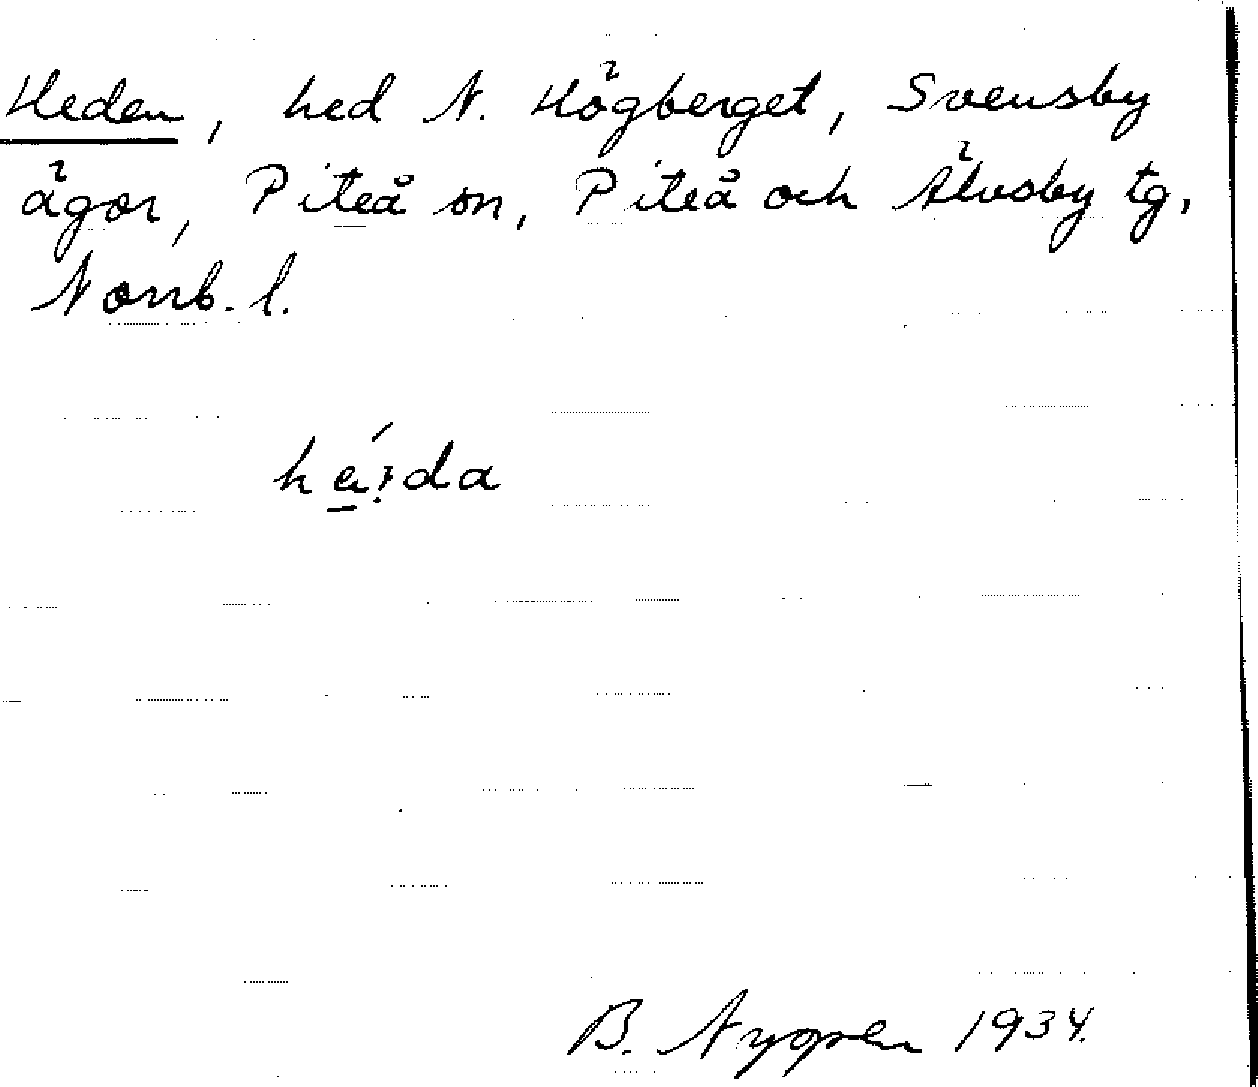 Heden, hed N. Högberget, Svensby
ägor, Piteå sn, Piteå och Älvsby tg,
Norrb. l.
B. 1934.